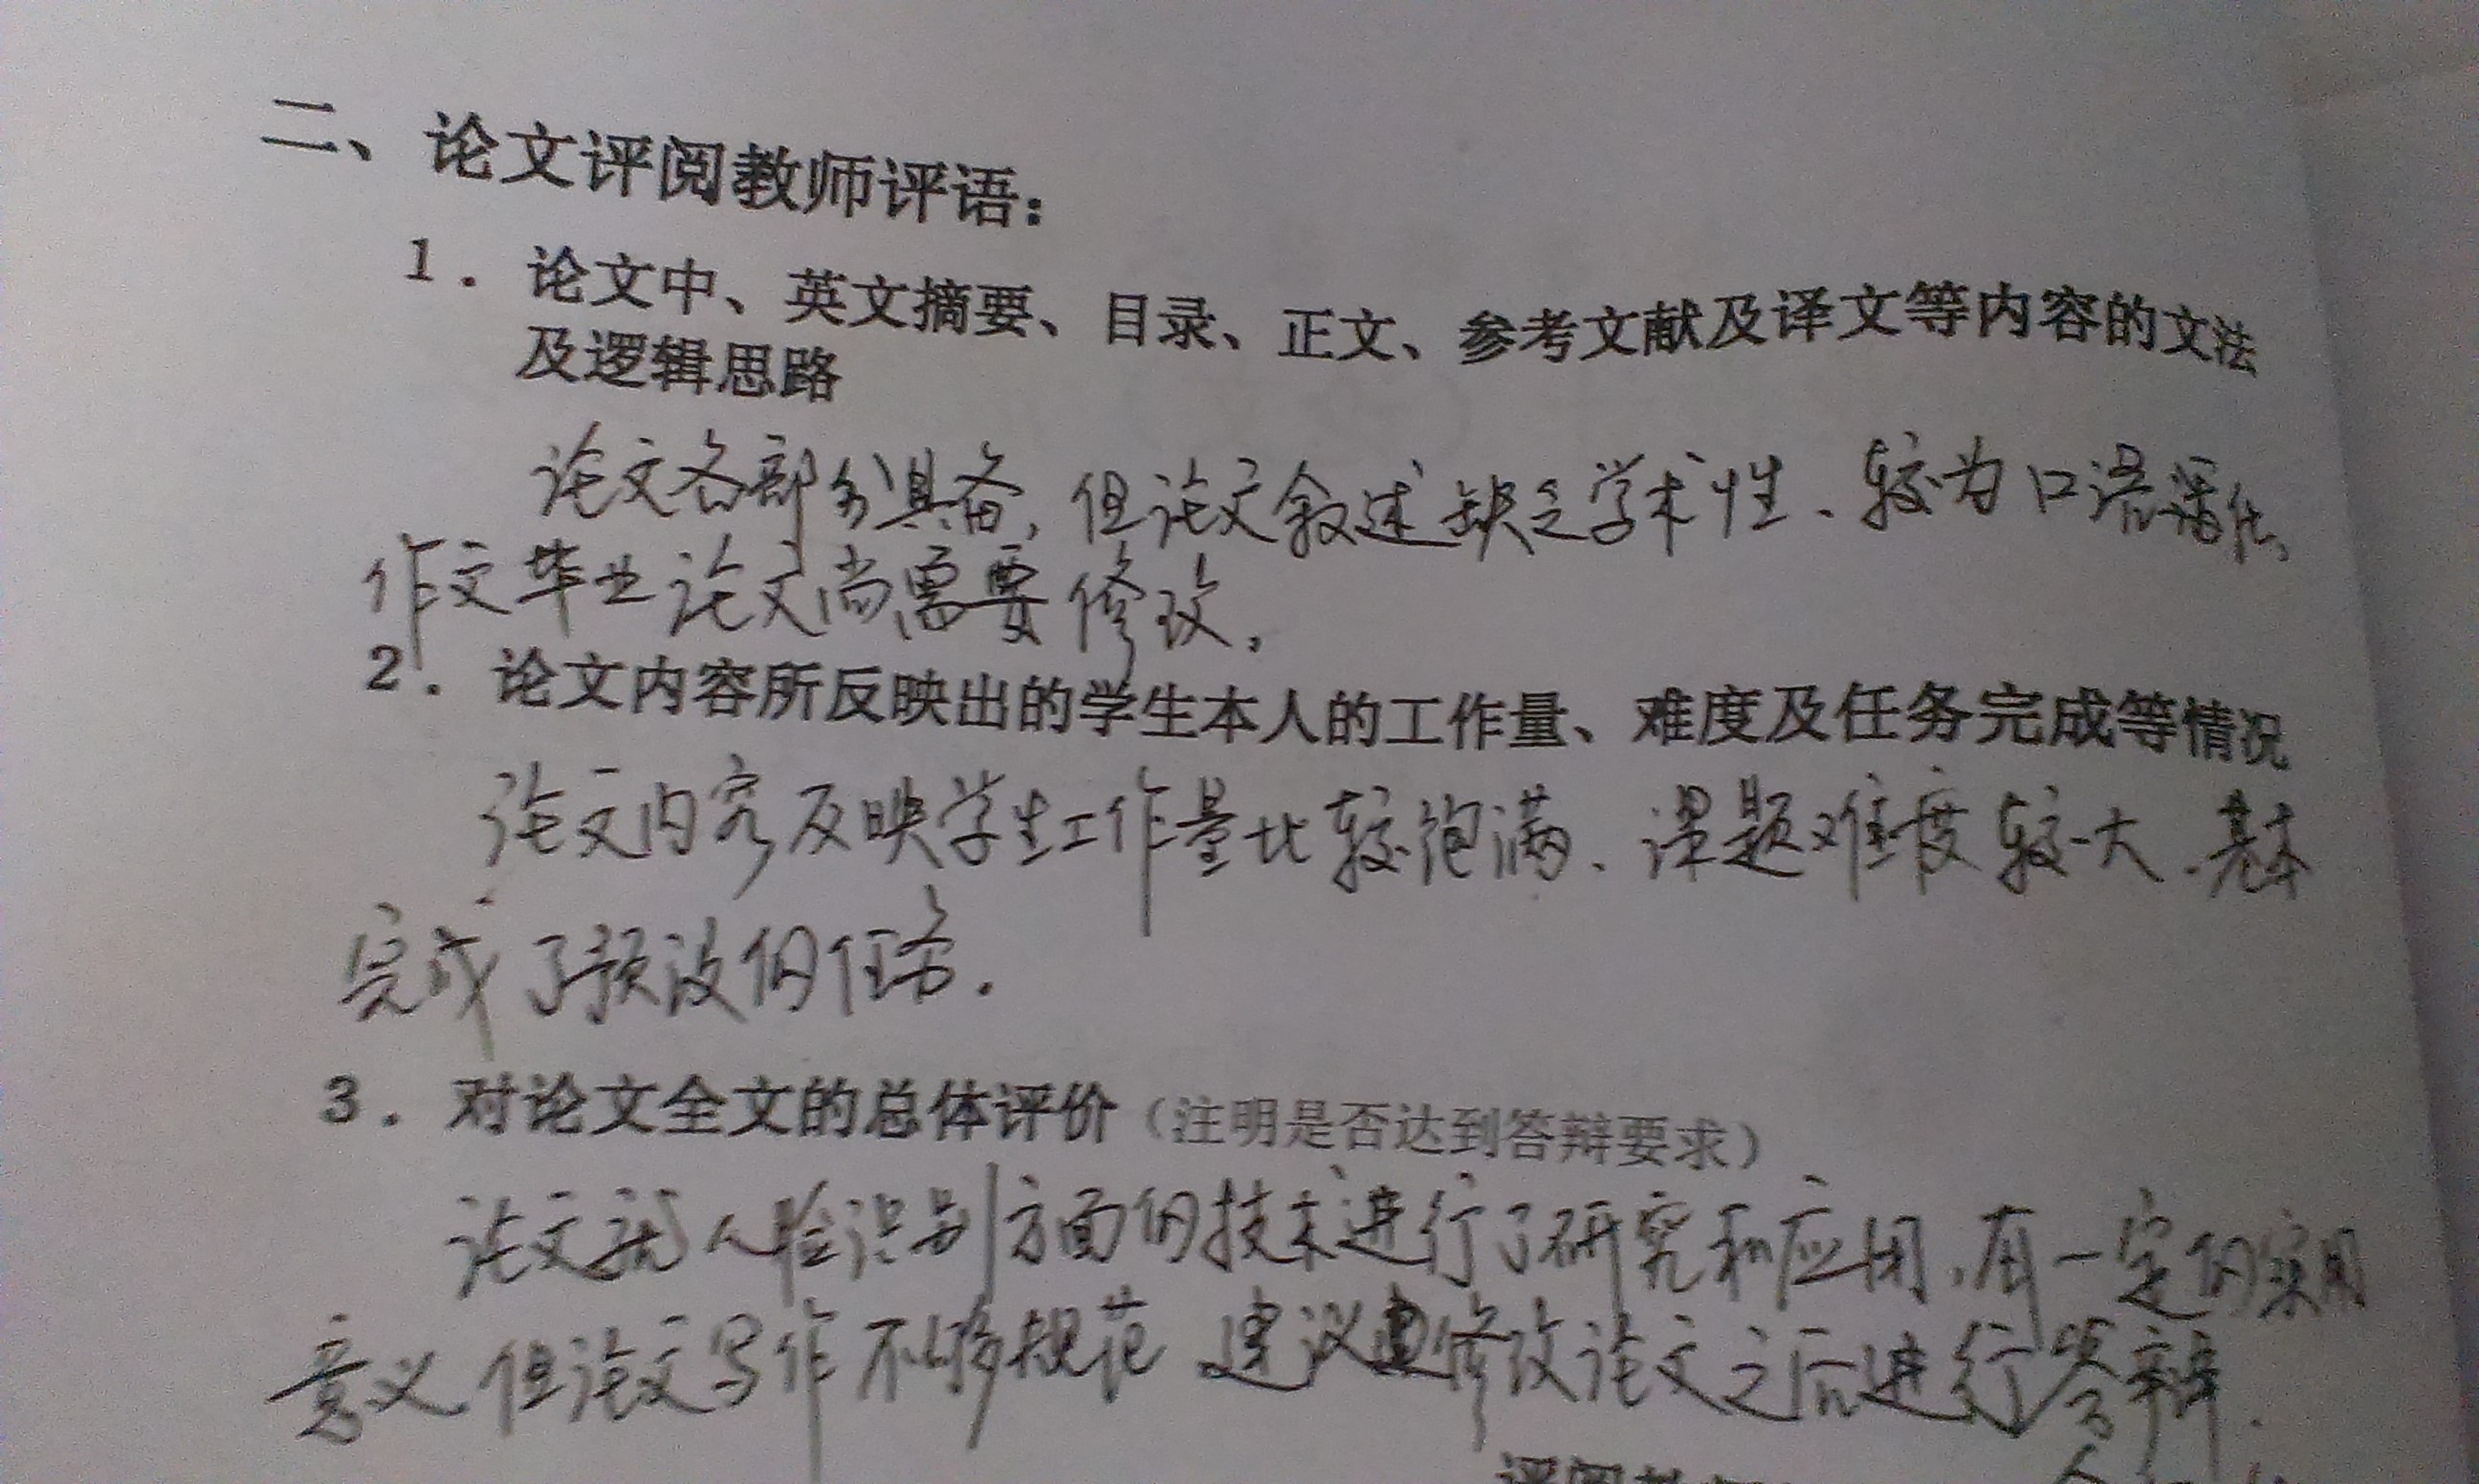 二、论文评阅教师评语：
1. 论文中、英文摘要、目录、正文、参考文献及译文等内容的文法
及逻辑思路
论文各部分具备，但论文叙述缺乏学术性、较为口语化，
作文毕业论文尚需要修改。
2. 论文内容所反映出的学生本人的工作量、难度及任务完成等情况
论文内容反映学生工作量比较饱满、课题难度较大．基本
完成了预设的任务．
3. 对论文全文的总体评价（注明是否达到答辩要求）
论文就人脸识别方面的技术进行了研究和应用，有一定的实用
意义．但论文写作不够规范 建议修改论文之后进行答辩．
评阅教师